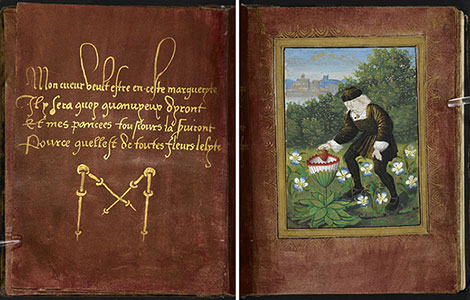 Mon cueur veult estre en ceste margueryte
Il y sera quoy quanvyeux dyront
Et mes pancees tousiours la suivront
Pource quellest de toutes fleurs leslyte